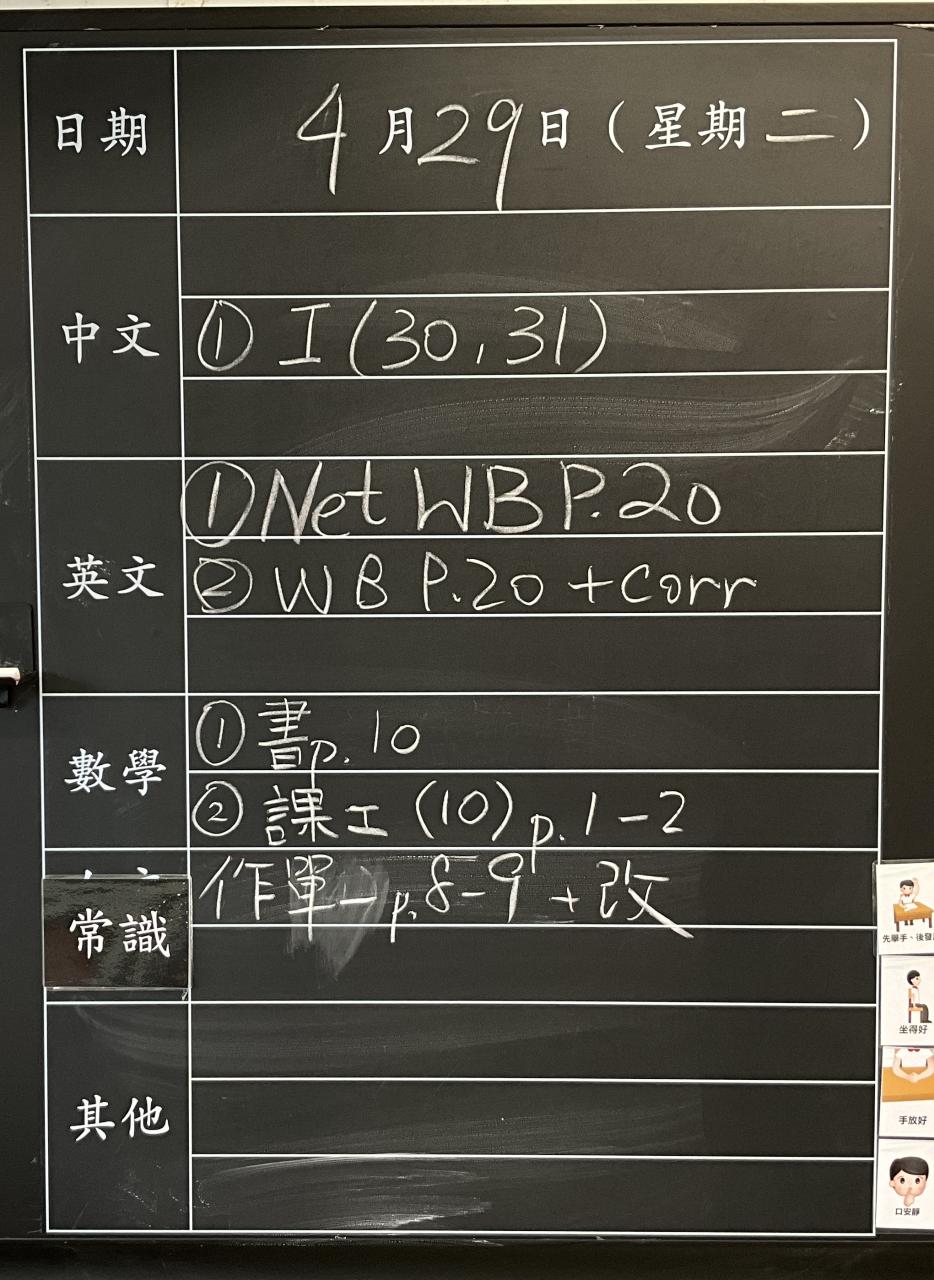 日期 4月29日(星期二)
中文
① I(30,31)
英文
① Net WB P.20
② WB P.20 + Corr
數學
① 書p.10
② 課工(10)p.1-2
常識
作單一p.8-9 + 改
其他
先舉手、後發
坐得好
手放好
口安靜